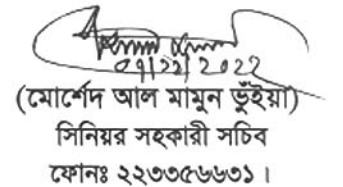 ০৭/১১/২০২২
(মোর্শেদ আল মামুন ভুঁইয়া)
সিনিয়র সহকারী সচিব
ফোনঃ ২২৩৩৫৬৬৩১।